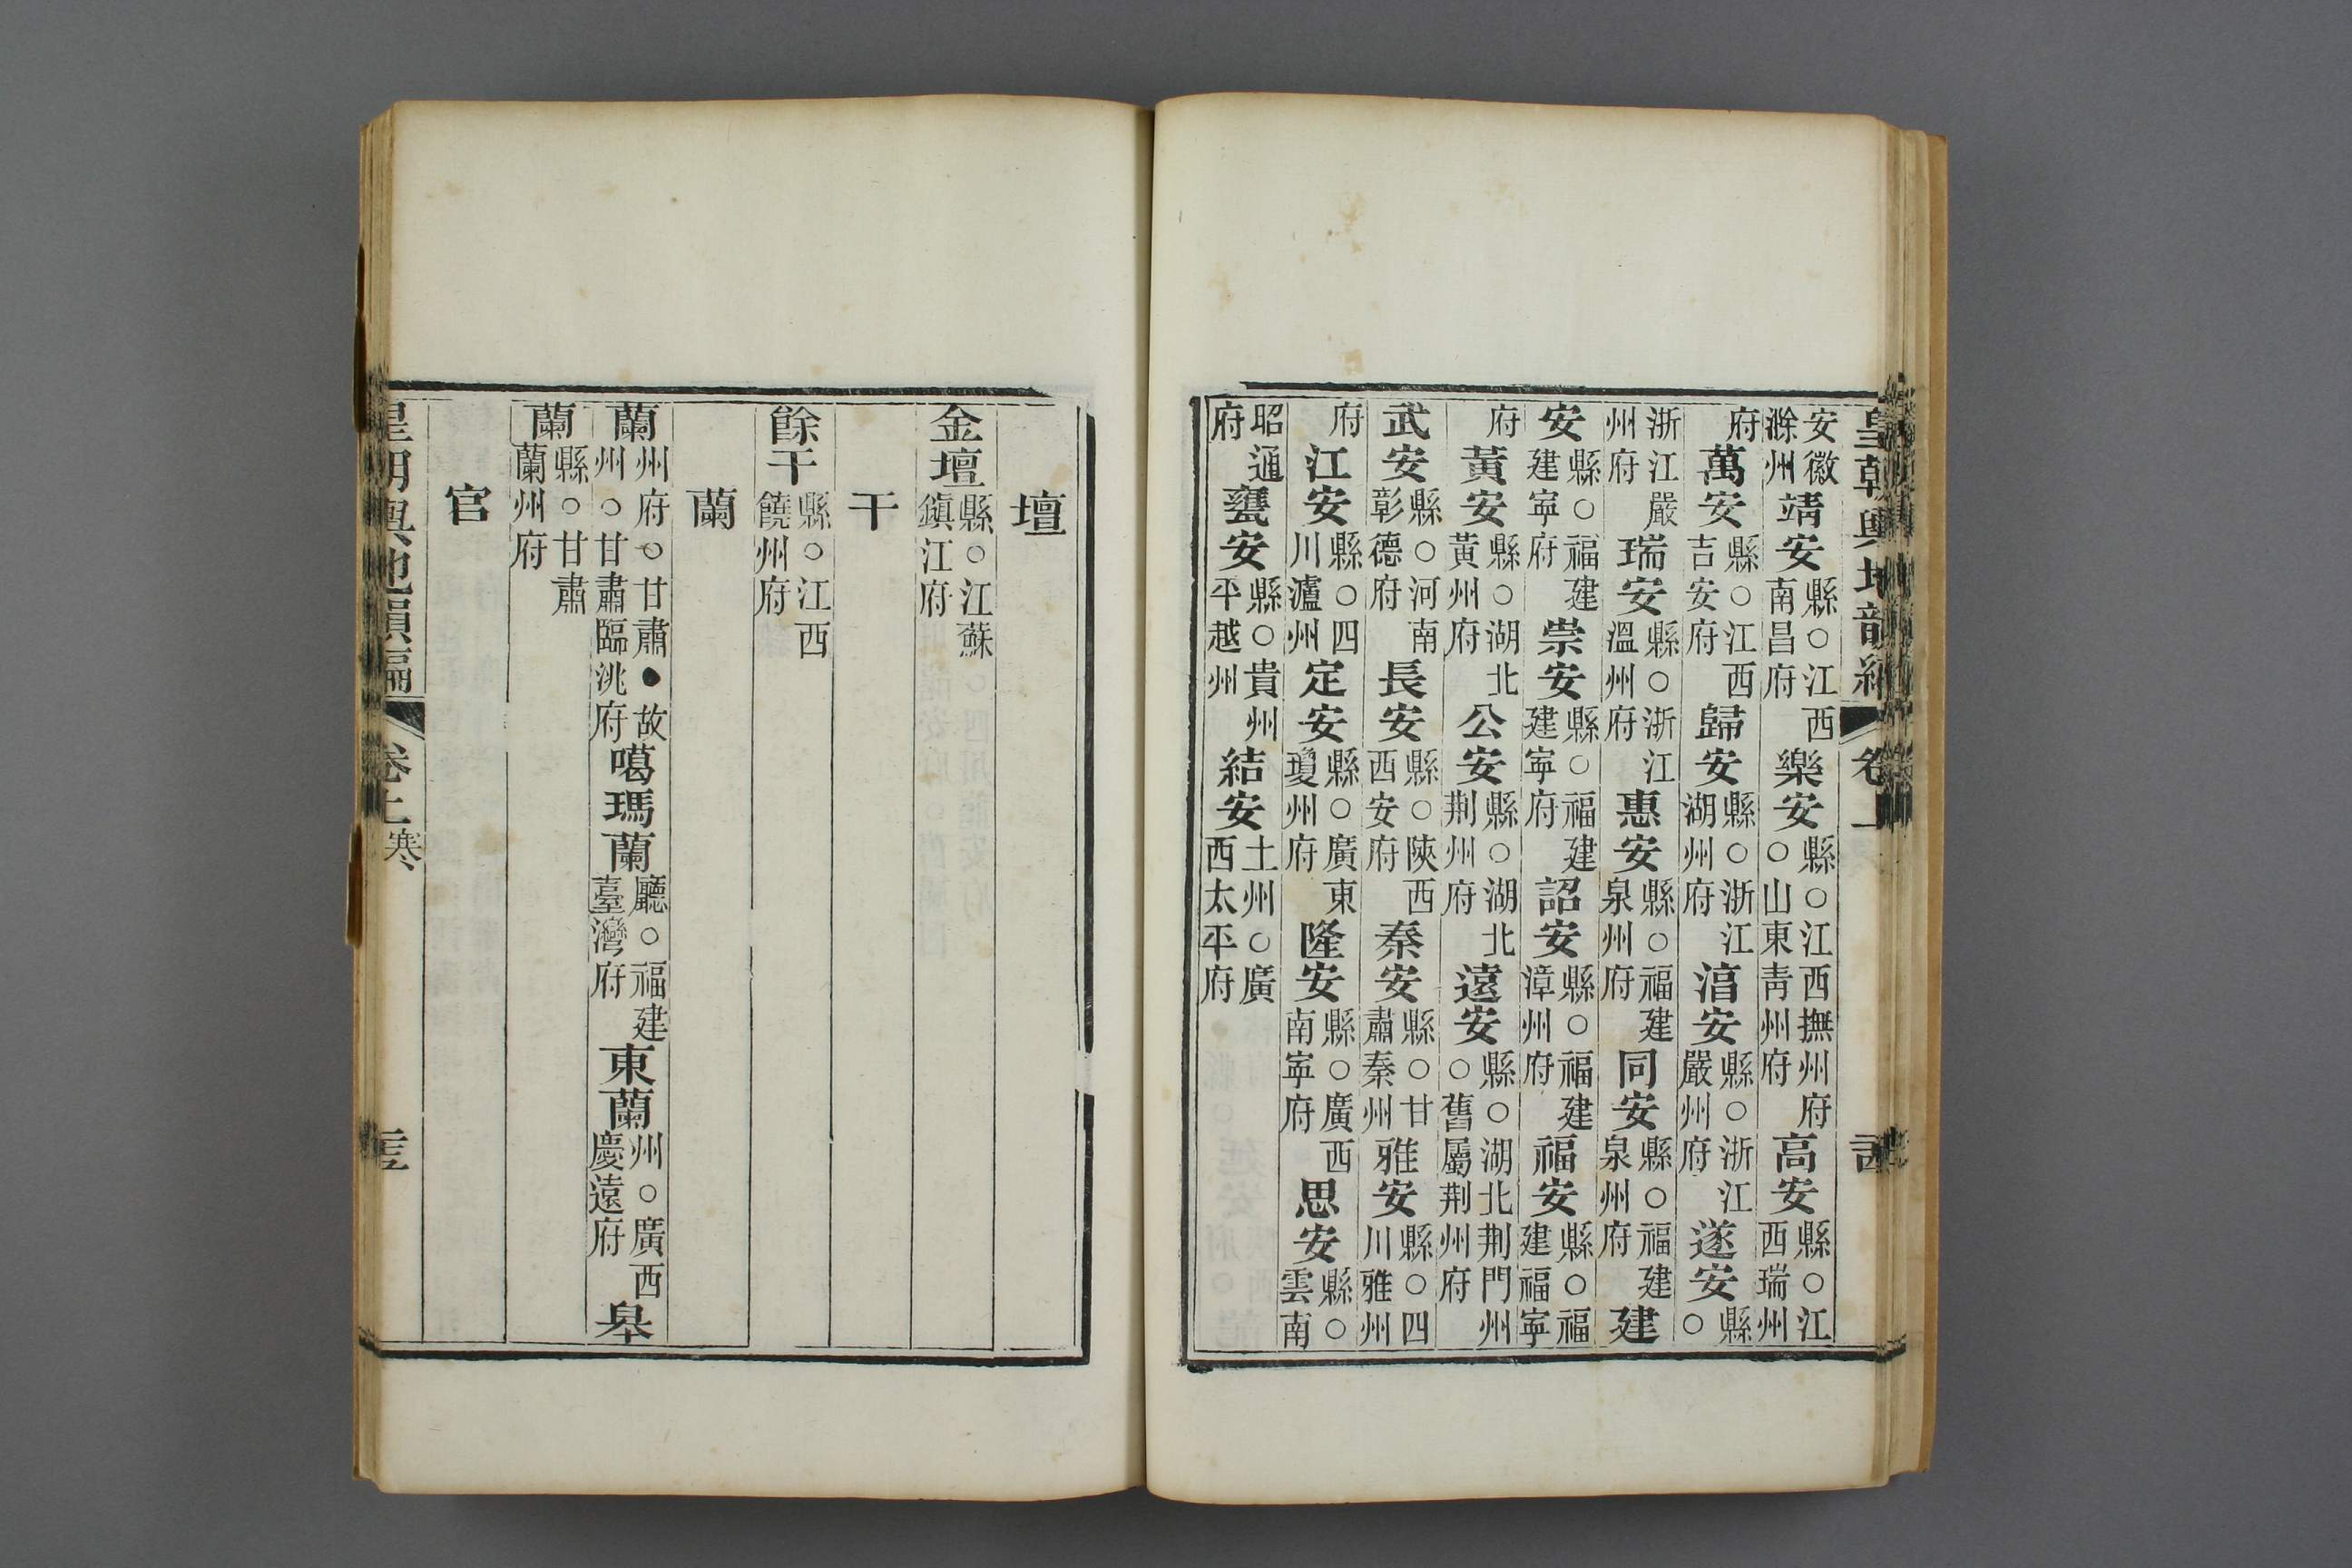 皇朝輿地韻編 卷上
安徽滁州靖安縣○江西南昌府樂安縣○江西撫州府○山東青州府高安縣○江西瑞州
府萬安縣○江西吉安府歸安縣○浙江湖州府湻安縣○浙江嚴州府遂安縣○
浙江嚴州府瑞安縣○浙江溫州府惠安縣○福建泉州府同安縣○福建泉州府建
安縣○福建建寧府崇安縣○福建建寧府詔安縣○福建漳州府福安縣○福建福寧
府黃安縣○湖北黃州府公安縣○湖北荆州府遠安縣○湖北荆門州○舊屬荆州府
武安縣○河南彰德府長安縣○陝西西安府秦安縣○甘肅秦州雅安縣○四川雅州
府江安縣○四川瀘州定安縣○廣東瓊州府隆安縣○廣西南寧府思安縣○雲南
昭通府甕安縣○貴州平越州結安土州○廣西太平府
壇
金壇縣○江蘇鎭江府
干
餘干縣○江西饒州府
蘭
蘭州府○甘肅●故州○甘肅臨洮府噶瑪蘭廳○福建臺灣府東蘭州○廣西慶遠府皋
蘭縣○甘肅蘭州府
官
皇朝輿地韻編 卷上 寒